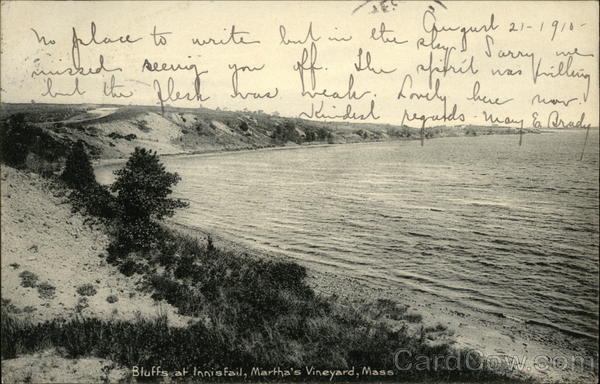 August 21 - 1910 -
No place to write but in the sky. Sorry we
missed seeing you off. The spirit was willing
but the flesh was weak. Lovely here now.
Kindest regards - May E. Brady
Bluffs at Innisfail, Martha's Vineyard, Mass
CardCow.com